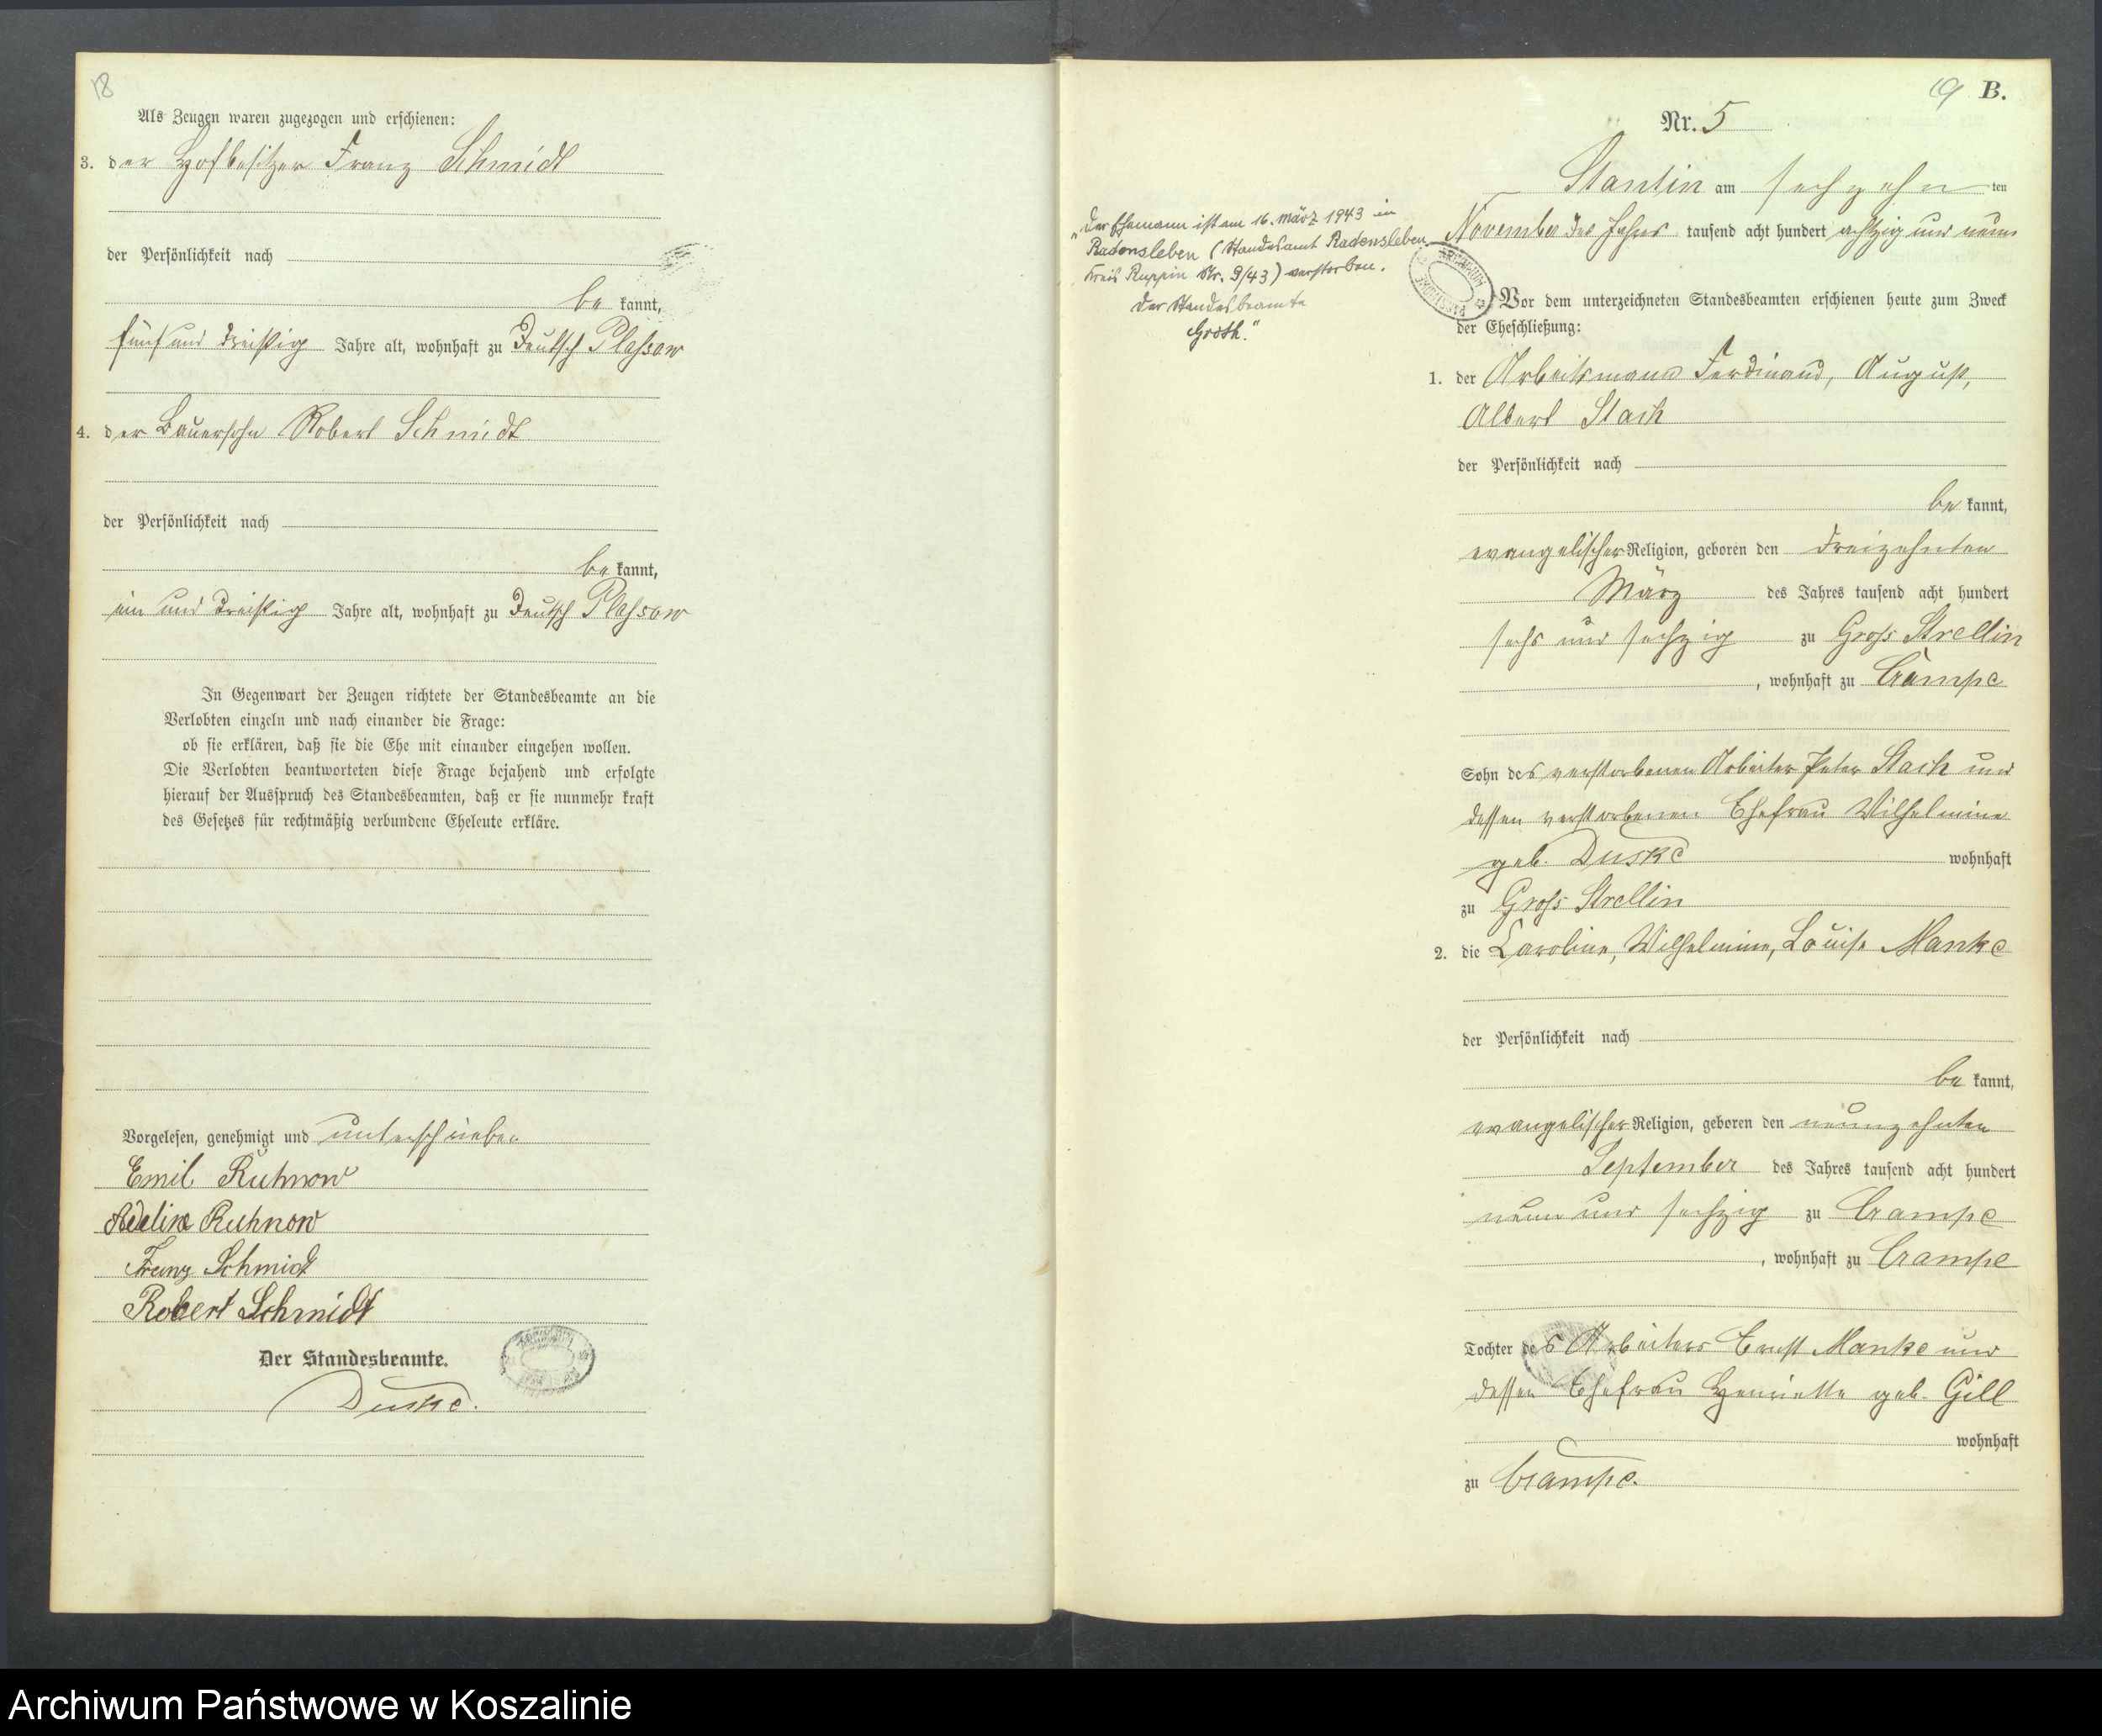 18
Als Zeugen waren zugezogen und erschienen:
3. der Hofbesitzer Franz Schmidt
der Persönlichkeit nach
be kannt,
fünf und dreißig Jahre alt, wohnhaft zu Deutsch Plassow
4. der Bauersohn Robert Schmidt
der Persönlichkeit nach
be kannt,
ein und dreißig Jahre alt, wohnhaft zu Deutsch Plassow
In Gegenwart der Zeugen richtete der Standesbeamte an die
Verlobten einzeln und nach einander die Frage:
ob sie erklären, daß sie die Ehe mit einander eingehen wollen.
Die Verlobten beantworteten diese Frage bejahend und erfolgte
hierauf der Ausspruch des Standesbeamten, daß er sie nunmehr kraft
des Gesetzes für rechtmäßig verbundene Eheleute erkläre.
Vorgelesen, genehmigt und unterschrieben
Emil Ruhnow
Adeline Ruhnow
Franz Schmidt
Robert Schmidt
Der Standesbeamte.
Duske.
19 B.
Nr. 5
Stantin am sechzehn ten
November des Jahres tausend acht hundert achtzig und neun
„Der Ehemann ist am 16. März 1943 in
Radensleben (Standesamt Radensleben
Kreis Ruppin Nr. 9/43) verstorben.
Der Standesbeamte
Groth."
Vor dem unterzeichneten Standesbeamten erschienen heute zum Zweck
der Eheschließung:
1. der Arbeitsmann Ferdinand, August,
Albert Stach
der Persönlichkeit nach
be kannt,
evangelischer Religion, geboren den dreizehnten
März des Jahres tausend acht hundert
sechs und sechzig zu Gross Strellin
, wohnhaft zu Crampe
Sohn des verstorbenen Arbeiter Peter Stach und
dessen verstorbenen Ehefrau Wilhelmine
geb. Duske wohnhaft
zu Gross Strellin
2. die Caroline, Wilhelmine, Louise Manke
der Persönlichkeit nach
be kannt,
evangelischer Religion, geboren den neunzehnten
September des Jahres tausend acht hundert
neun und sechzig zu Crampe
, wohnhaft zu Crampe
Tochter des Arbeiters Ernst Manke und
dessen Ehefrau Henriette geb. Gill
wohnhaft
zu Crampe.
Archiwum Państwowe w Koszalinie